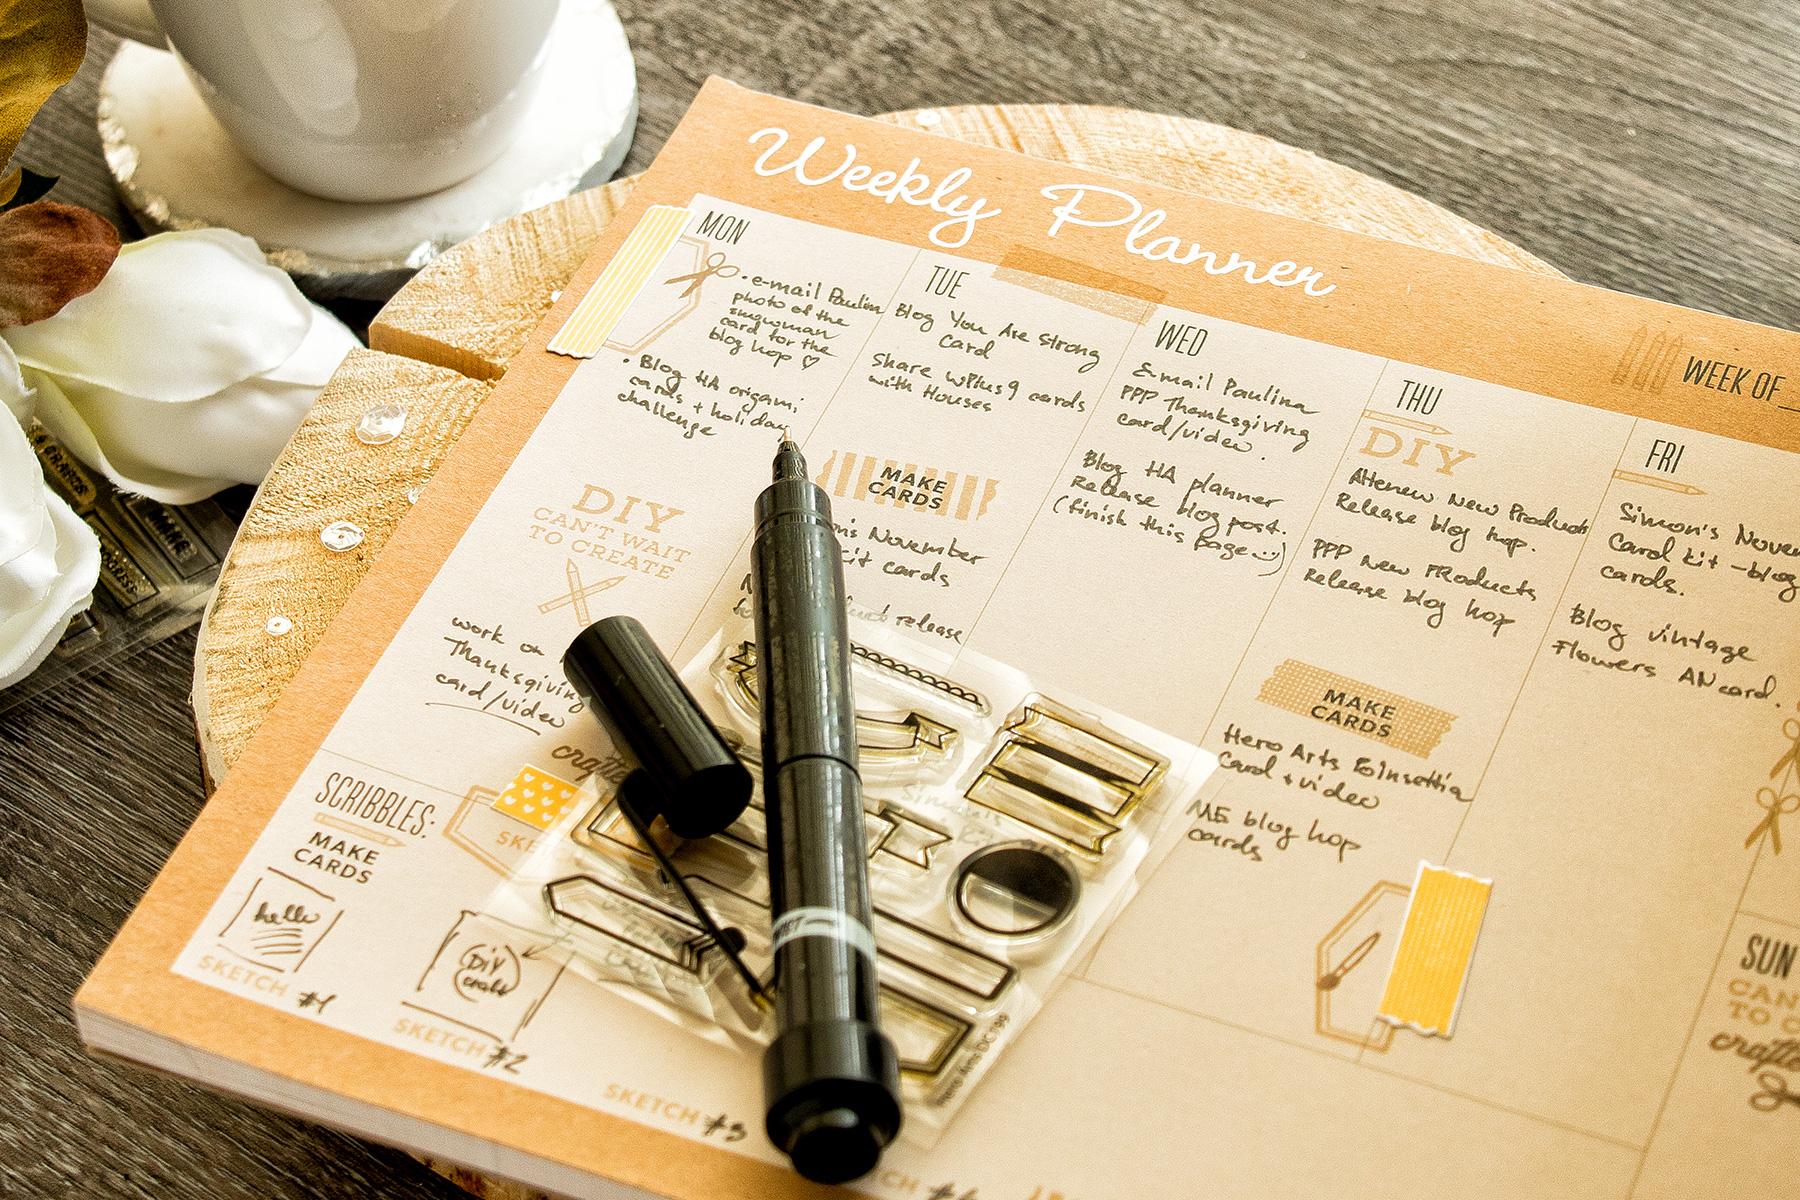 Weekly Planner
WEEK OF
MON
• e-mail Paulina
photo of the
snowman
card for the
blog hop ♡
• Blog HA origami
cards + holiday
challenge
DIY
CAN'T WAIT
TO CREATE
work on
Thanksgiving
card/video
TUE
Blog You Are Strong
card
Share WPlus9 cards
with Houses
MAKE
CARDS
November
cards
release
WED
E-mail Paulina
PPP Thanksgiving
card/video.
Blog HA planner
Release blog post.
(finish this page :))
THU
DIY
Altenew New Product
Release blog hop.
PPP New PRoducts
Release blog hop
MAKE
CARDS
Hero Arts Poinsettia
Card + video
ME blog hop
cards
FRI
Simon's
Card kit - blog
cards.
Blog vintage
Flowers AN card.
SUN
SCRIBBLES:
MAKE
CARDS
hello
SKETCH #1
DIY
craft
SKETCH #2
SKETCH #3
Hero Arts